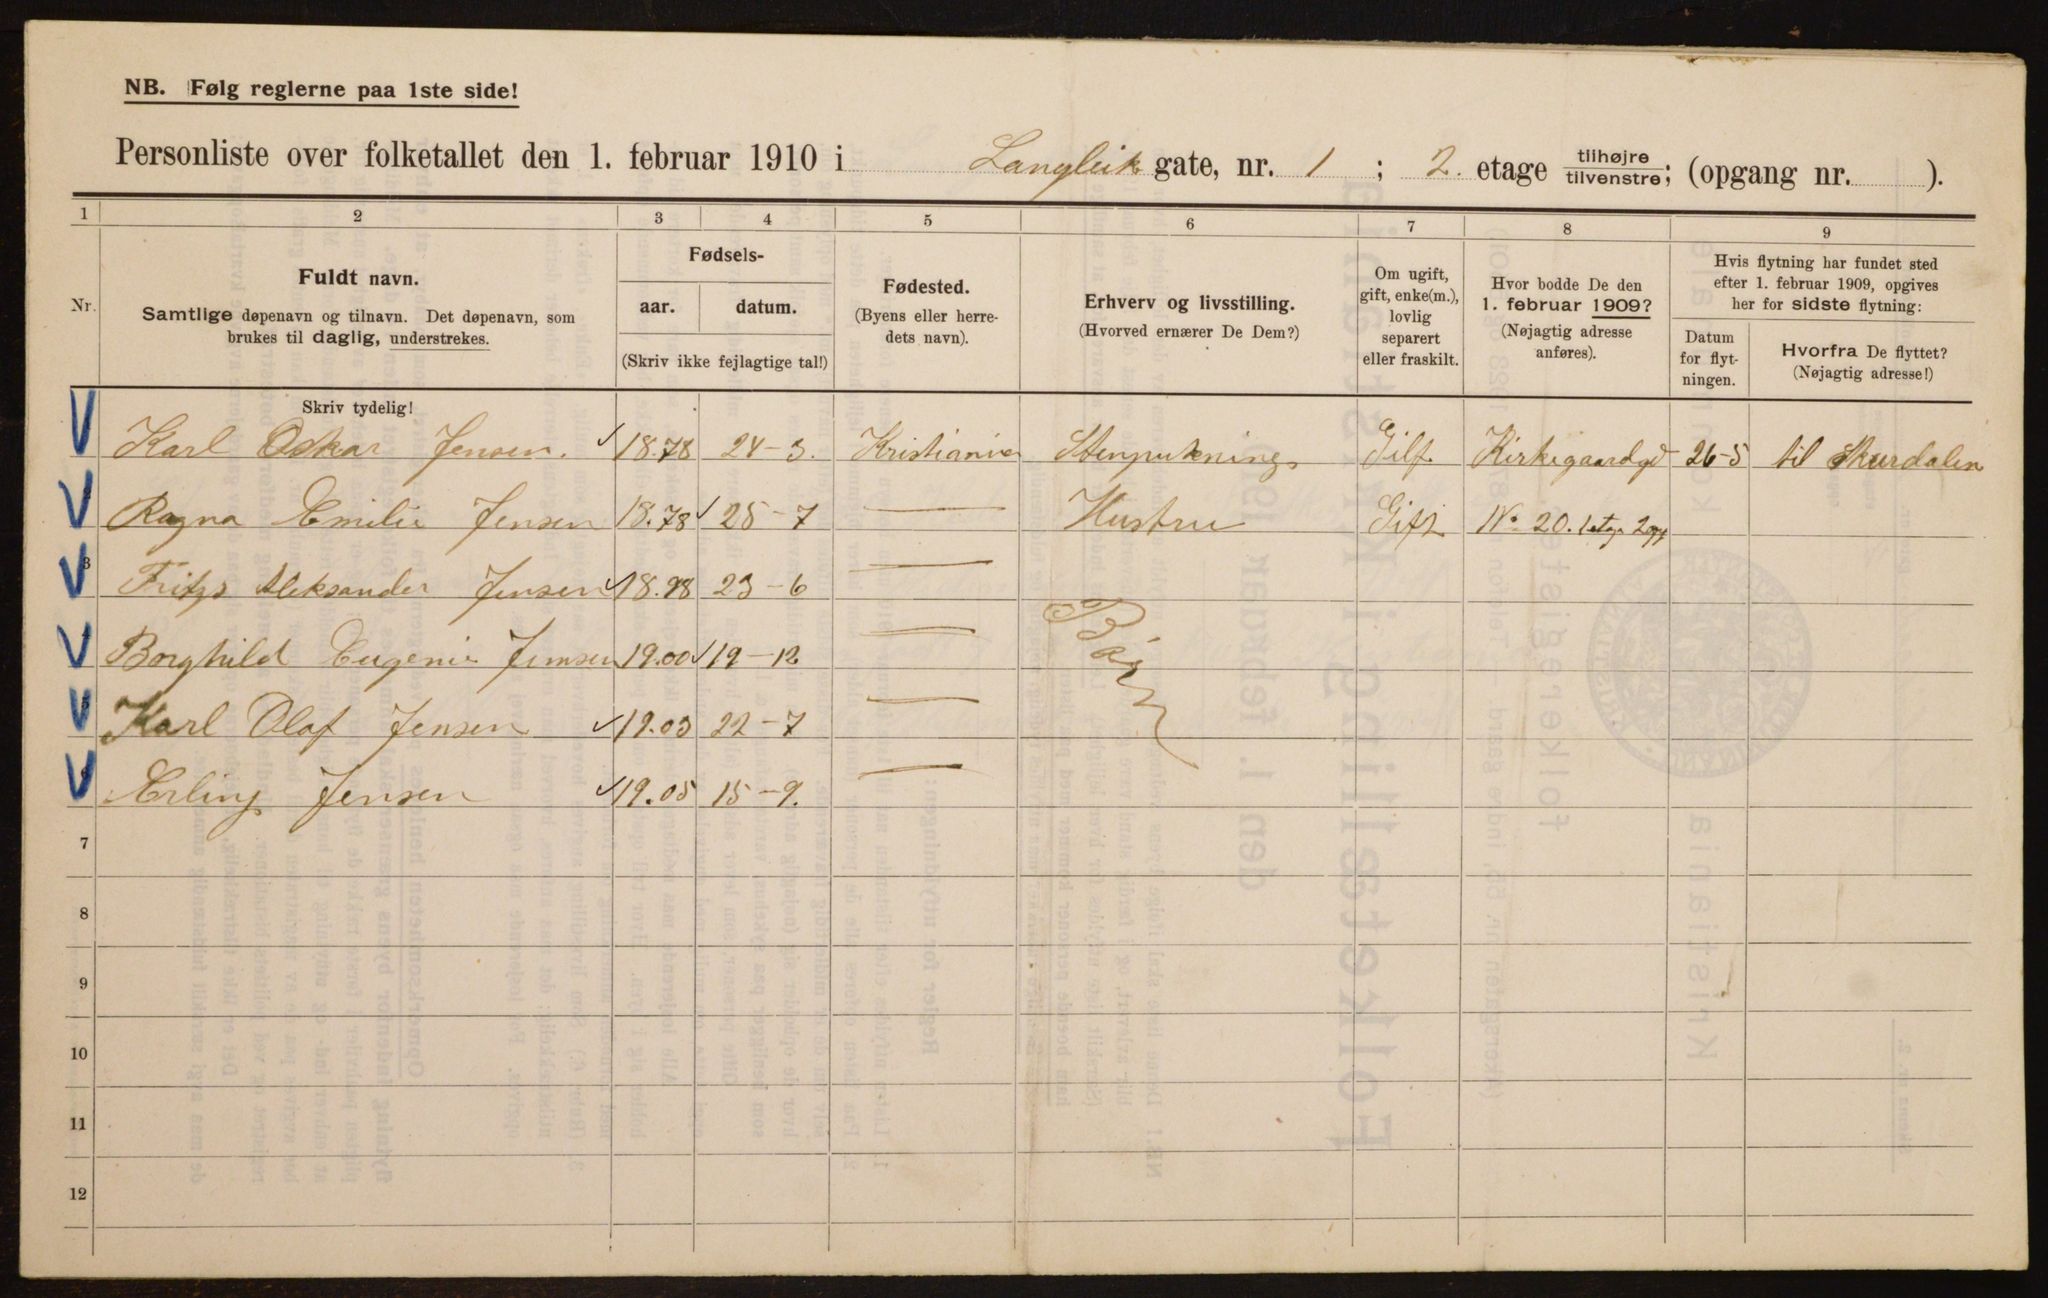 NB. Følg reglerne paa 1ste side!
Personliste over folketallet den 1. februar 1910 i Langleik gate, nr. 1 ; 2. etage tilhøjre/tilvenstre; (opgang nr. ).
1 2 3 4 5 6 7 8 9
Nr.
Fuldt navn.
Samtlige døpenavn og tilnavn. Det døpenavn, som
brukes til daglig, understrekes.
Fødsels-
aar. datum.
(Skriv ikke fejlagtige tal!)
Fødested.
(Byens eller herre-
dets navn).
Erhverv og livsstilling.
(Hvorved ernærer De Dem?)
Om ugift,
gift, enke(m.),
lovlig
separert
eller fraskilt.
Hvor bodde De den
1. februar 1909?
(Nøjagtig adresse
anføres).
Hvis flytning har fundet sted
efter 1. februar 1909, opgives
her for sidste flytning:
Datum
for flyt-
ningen.
Hvorfra De flyttet?
(Nøjagtig adresse!)
Skriv tydelig!
Karl Oskar Jensen. 18.78 24-3. Kristiania Gift Kirkegaardgd 26-5 til Skurdalen
Ragna Emilie Jensen 18.78 25-7 — Hustru Gift No 20. 1 etg.
3 Fritzs Aleksander Jensen 18.98 23-6 —
Borghild Eugenie Jensen 19.00 19-12 — Børn
5 Karl Olaf Jensen 19.03 22-7 —
6 Erling Jensen 19.05 15-9. —
7
8
9
10
11
12